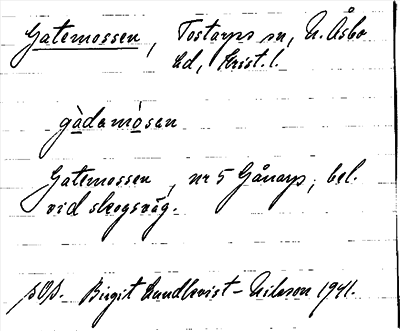 Gatemossen, Tostarps sn, N. Åsbo
hd, Krist. l.
gàdəmòsən
Gatemossen, nr 5 Gånarp, bel.
vid skogsväg.
Birgit Lundkvist-Nilsson 1941.